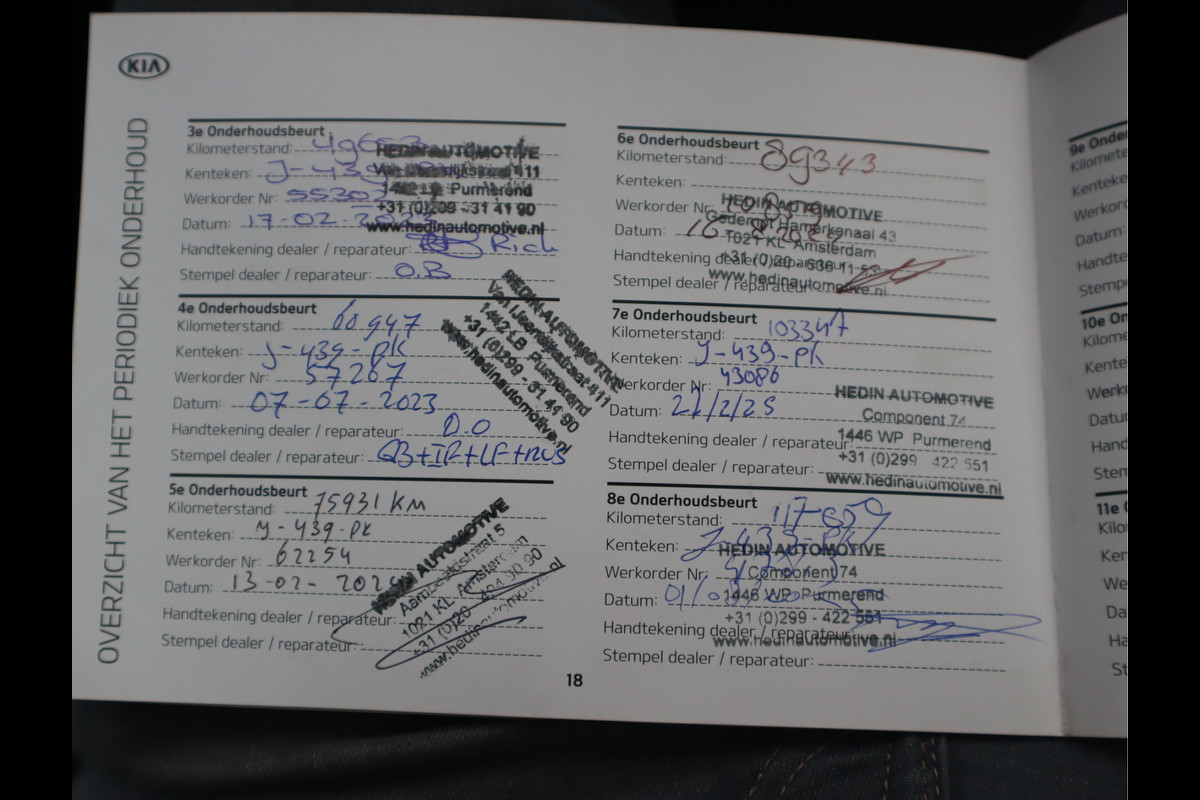 KIA
OVERZICHT VAN HET PERIODIEK ONDERHOUD
3e Onderhoudsbeurt
Kilometerstand:
Kenteken: J-439
Werkorder Nr:
Datum: 17-02-2023
Handtekening dealer / reparateur: Rich
Stempel dealer / reparateur: O.B
HEDIN AUTOMOTIVE
Van IJsendijkstraat 411
1442 LB Purmerend
+31 (0)299 - 31 41 90
www.hedinautomotive.nl
4e Onderhoudsbeurt
Kilometerstand: 60947
Kenteken: J-439-PK
Werkorder Nr: 57267
Datum: 07-07-2023
Handtekening dealer / reparateur: D.O
Stempel dealer / reparateur:
HEDIN AUTOMOTIVE
Van IJsendijkstraat 411
1442 LB Purmerend
+31 (0)299 - 31 41 90
www.hedinautomotive.nl
5e Onderhoudsbeurt
Kilometerstand: 75931 KM
Kenteken: J-439-PK
Werkorder Nr: 62254
Datum: 13-02-202
Handtekening dealer / reparateur:
Stempel dealer / reparateur:
HEDIN AUTOMOTIVE
1021 KL Amsterdam
www.hedinautomotive.nl
6e Onderhoudsbeurt
Kilometerstand: 89343
Kenteken:
Werkorder Nr:
Datum: 16
Handtekening dealer / reparateur:
Stempel dealer / reparateur:
HEDIN AUTOMOTIVE
Gedempt Hamerkanaal 43
1021 KL Amsterdam
+31 (0)20 - 636 11 53
www.hedinautomotive.nl
7e Onderhoudsbeurt
Kilometerstand: 103347
Kenteken: J-439-PK
Werkorder Nr: 43086
Datum: 21/2/25
Handtekening dealer / reparateur:
Stempel dealer / reparateur:
HEDIN AUTOMOTIVE
Component 74
1446 WP Purmerend
+31 (0)299 422 551
www.hedinautomotive.nl
8e Onderhoudsbeurt
Kilometerstand: 117659
Kenteken: J-439-PK
Werkorder Nr:
Datum:
Handtekening dealer / reparateur:
Stempel dealer / reparateur:
HEDIN AUTOMOTIVE
Component 74
1446 WP Purmerend
+31 (0)299 - 422 551
www.hedinautomotive.nl
18
9e Onder
Kilomete
Kenteke
Werkor
Datum:
Handte
Stemp
10e On
Kilome
Kente
Werk
Datu
Hand
Sten
11e
Kilo
Ker
We
Da
Ha
St